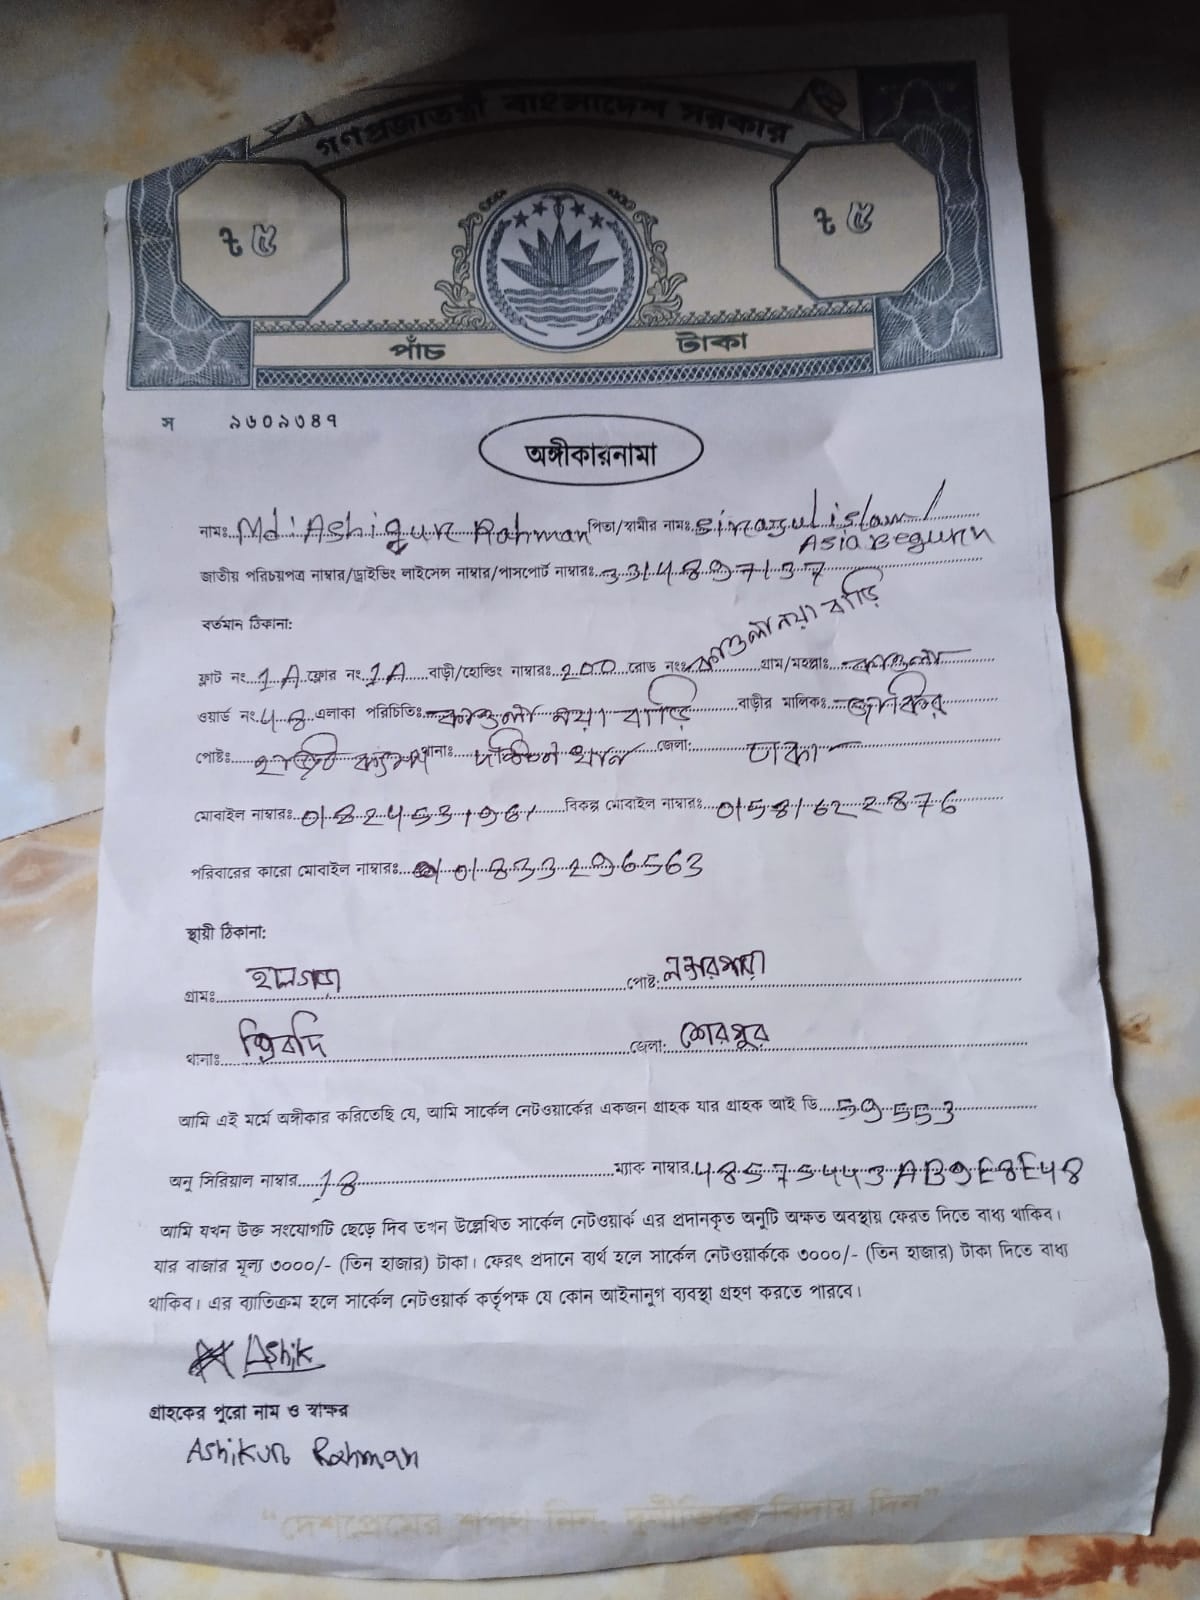 গণপ্রজাতন্ত্রী বাংলাদেশ সরকার
৳ ৫ ৳ ৫
পাঁচ টাকা
স ৯৬০৯৩৪৭
অঙ্গীকারনামা
নামঃ Md: Ashiqur Rahman পিতা/স্বামীর নামঃ Sirazul islam /
Asia Begum
জাতীয় পরিচয়পত্র নাম্বার/ড্রাইভিং লাইসেন্স নাম্বার/পাসপোর্ট নাম্বারঃ 3314897137
বর্তমান ঠিকানা:
নয়া বাড়ি
ফ্লাট নং 1A ফ্লোর নং 1A বাড়ী/হোল্ডিং নাম্বারঃ 200 রোড নংঃ গ্রাম/মহল্লাঃ
ওয়ার্ড নং 48 এলাকা পরিচিতিঃ নয়া বাড়ি বাড়ীর মালিকঃ
পোষ্টঃ থানাঃ জেলা: ঢাকা
মোবাইল নাম্বারঃ 01824531961 বিকল্প মোবাইল নাম্বারঃ 01581622876
পরিবারের কারো মোবাইল নাম্বারঃ 01833296563
স্থায়ী ঠিকানা:
গ্রামঃ পোষ্ট:
থানাঃ জেলা: শেরপুর
আমি এই মর্মে অঙ্গীকার করিতেছি যে, আমি সার্কেল নেটওয়ার্কের একজন গ্রাহক যার গ্রাহক আই ডি 59553
অনু সিরিয়াল নাম্বার 18 ম্যাক নাম্বার 48575443AB9E8E48
আমি যখন উক্ত সংযোগটি ছেড়ে দিব তখন উল্লেখিত সার্কেল নেটওয়ার্ক এর প্রদানকৃত অনুটি অক্ষত অবস্থায় ফেরত দিতে বাধ্য থাকিব।
যার বাজার মূল্য ৩০০০/- (তিন হাজার) টাকা। ফেরৎ প্রদানে ব্যর্থ হলে সার্কেল নেটওয়ার্ককে ৩০০০/- (তিন হাজার) টাকা দিতে বাধ্য
থাকিব। এর ব্যাতিক্রম হলে সার্কেল নেটওয়ার্ক কর্তৃপক্ষ যে কোন আইনানুগ ব্যবস্থা গ্রহণ করতে পারবে।
Ashik
গ্রাহকের পুরো নাম ও স্বাক্ষর
Ashikur Rahman
“দেশপ্রেমের শপথ নিন, দুর্নীতিকে বিদায় দিন”